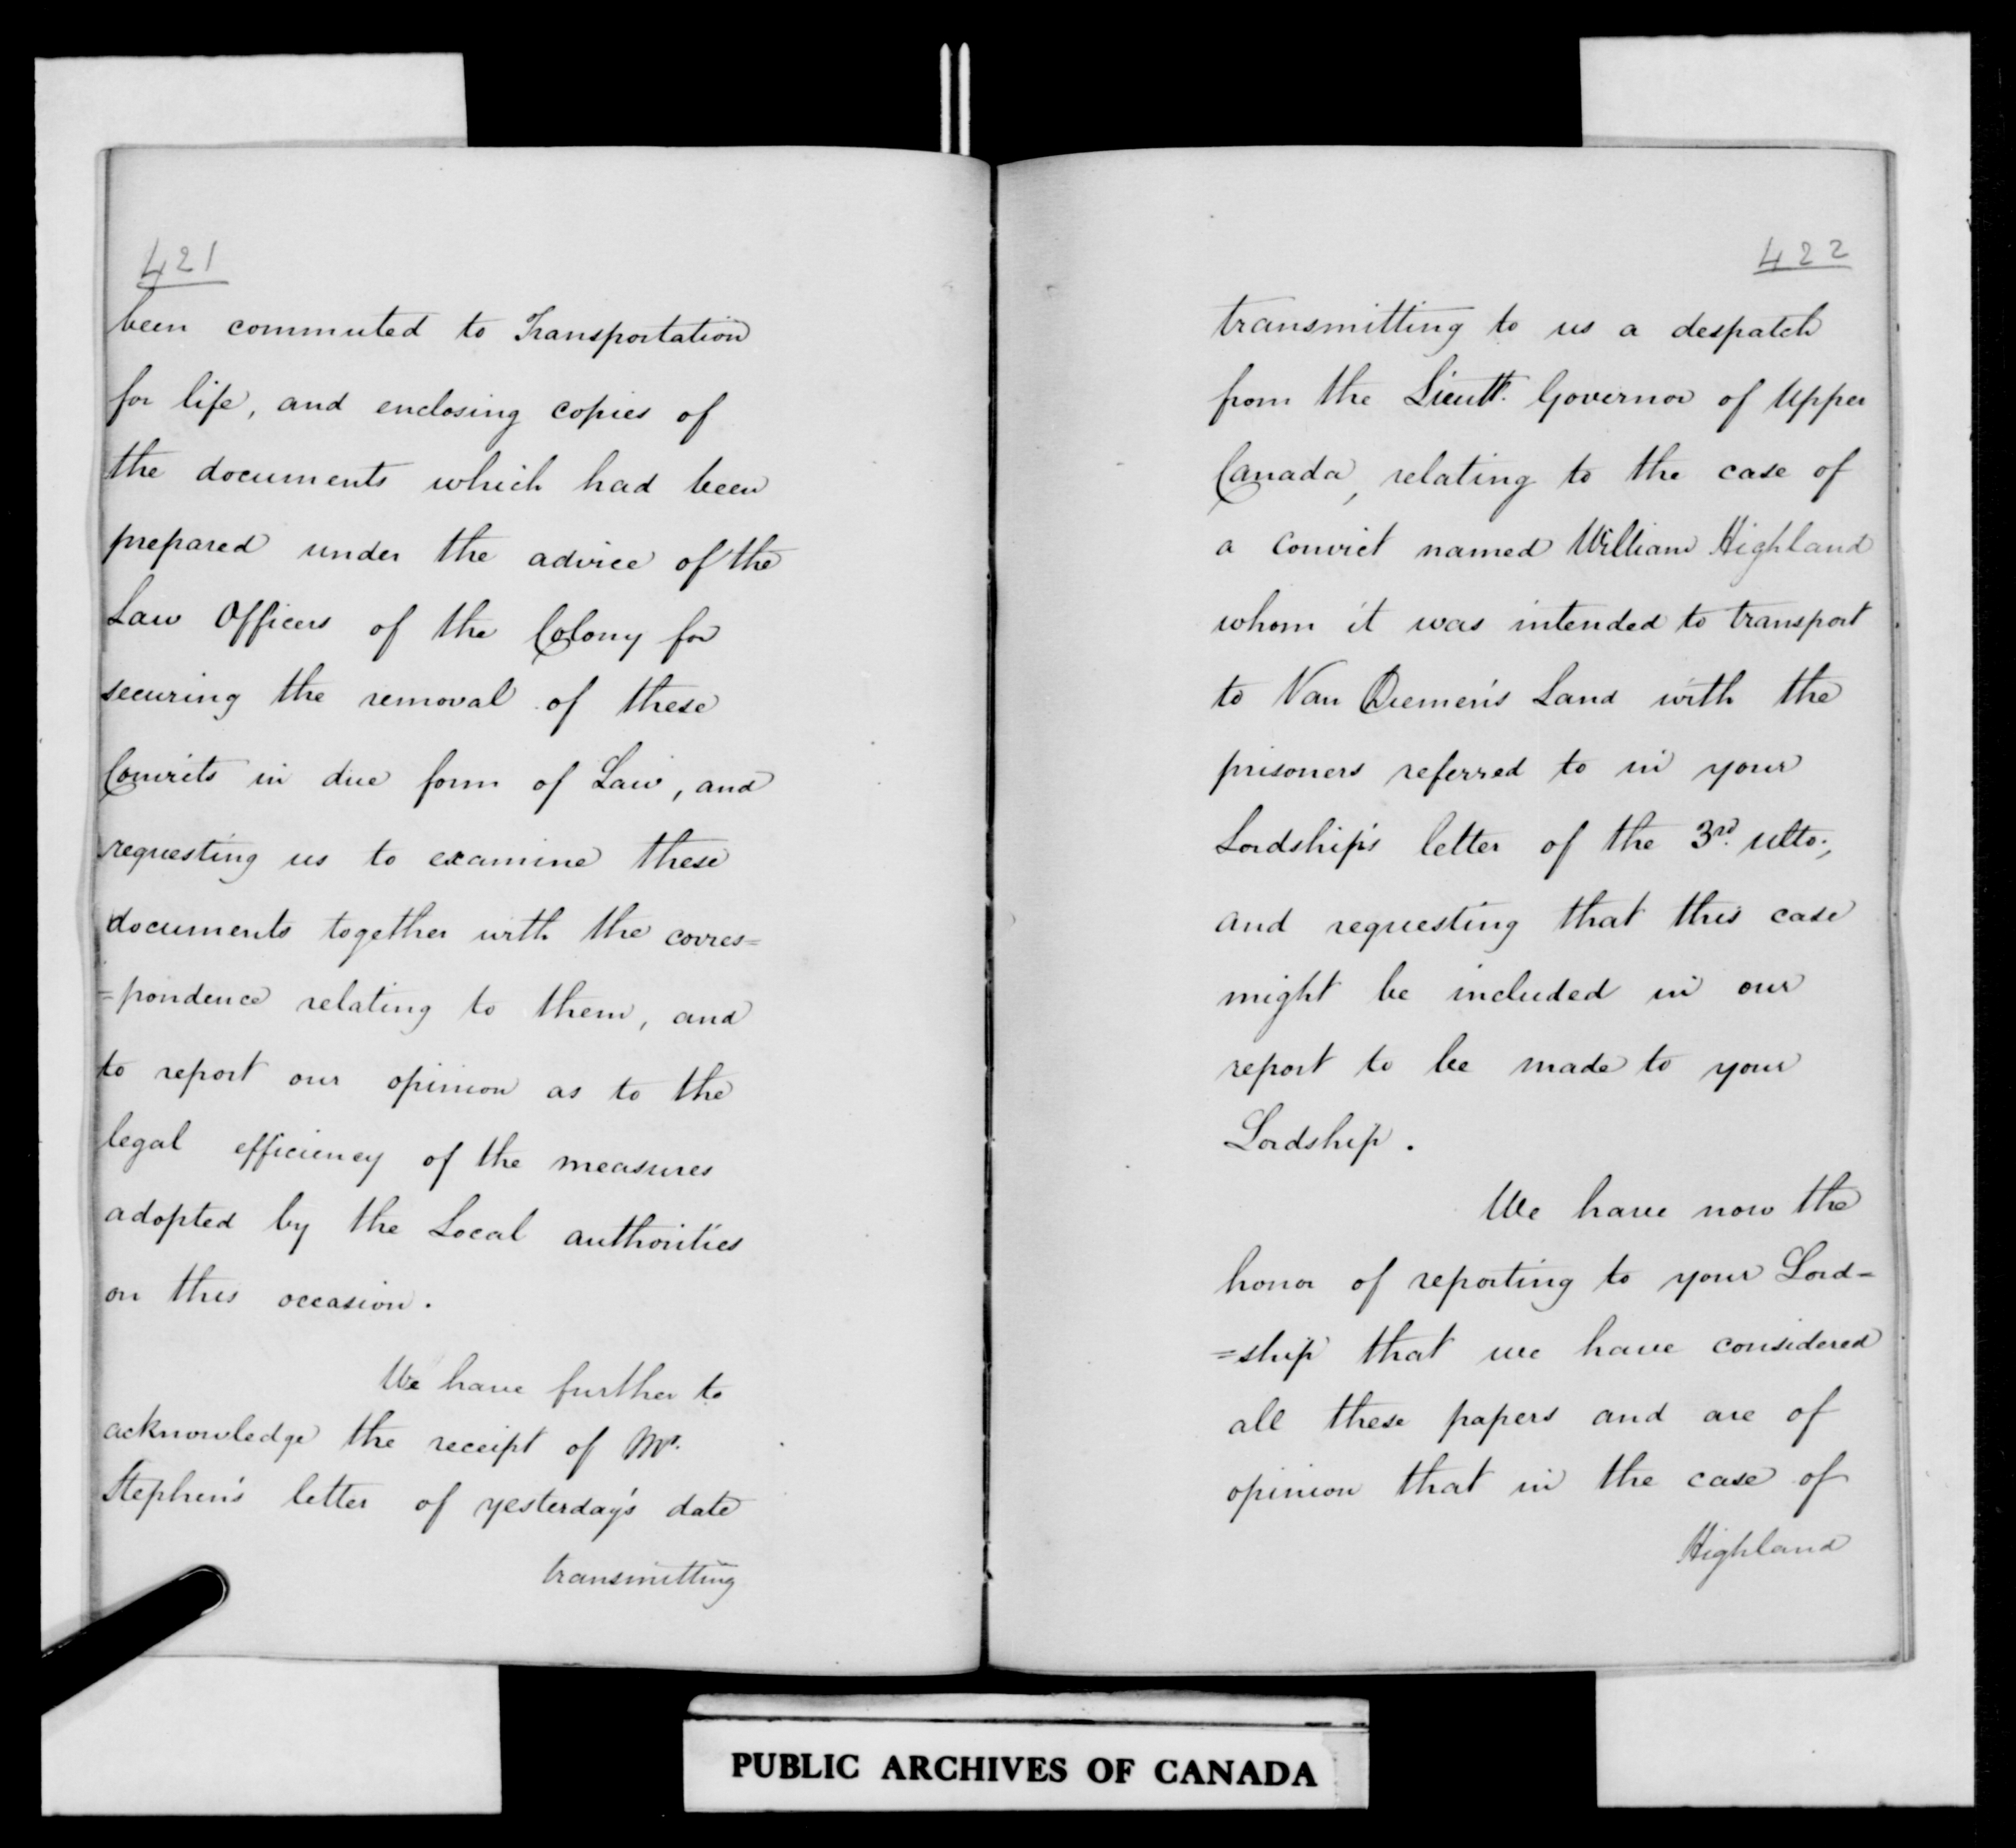 421
been commuted to Transportation
for life, and enclosing copies of
the documents which had been
prepared under the advice of the
Law Officers of the Colony for
securing the removal of these
Convicts in due form of Law, and
requesting us to examine these
documents together with the corres=
=pondence relating to them, and
to report our opinion as to the
legal efficiency of the measures
adopted by the Local authorities
on this occasion.
We have further to
acknowledge the receipt of Mr.
Stephen's letter of yesterday's date
transmitting
422
transmitting to us a despatch
from the Lieutt. Governor of Upper
Canada, relating to the case of
a convict named William Highland
whom it was intended to transport
to Van Diemen's Land with the
prisoners referred to in your
Lordship's letter of the 3rd. ulto.,
and requesting that this case
might be included in our
report to be made to your
Lordship.
We have now the
honor of reporting to your Lord=
=ship that we have considered
all these papers and are of
opinion that in the case of
Highland
PUBLIC ARCHIVES OF CANADA